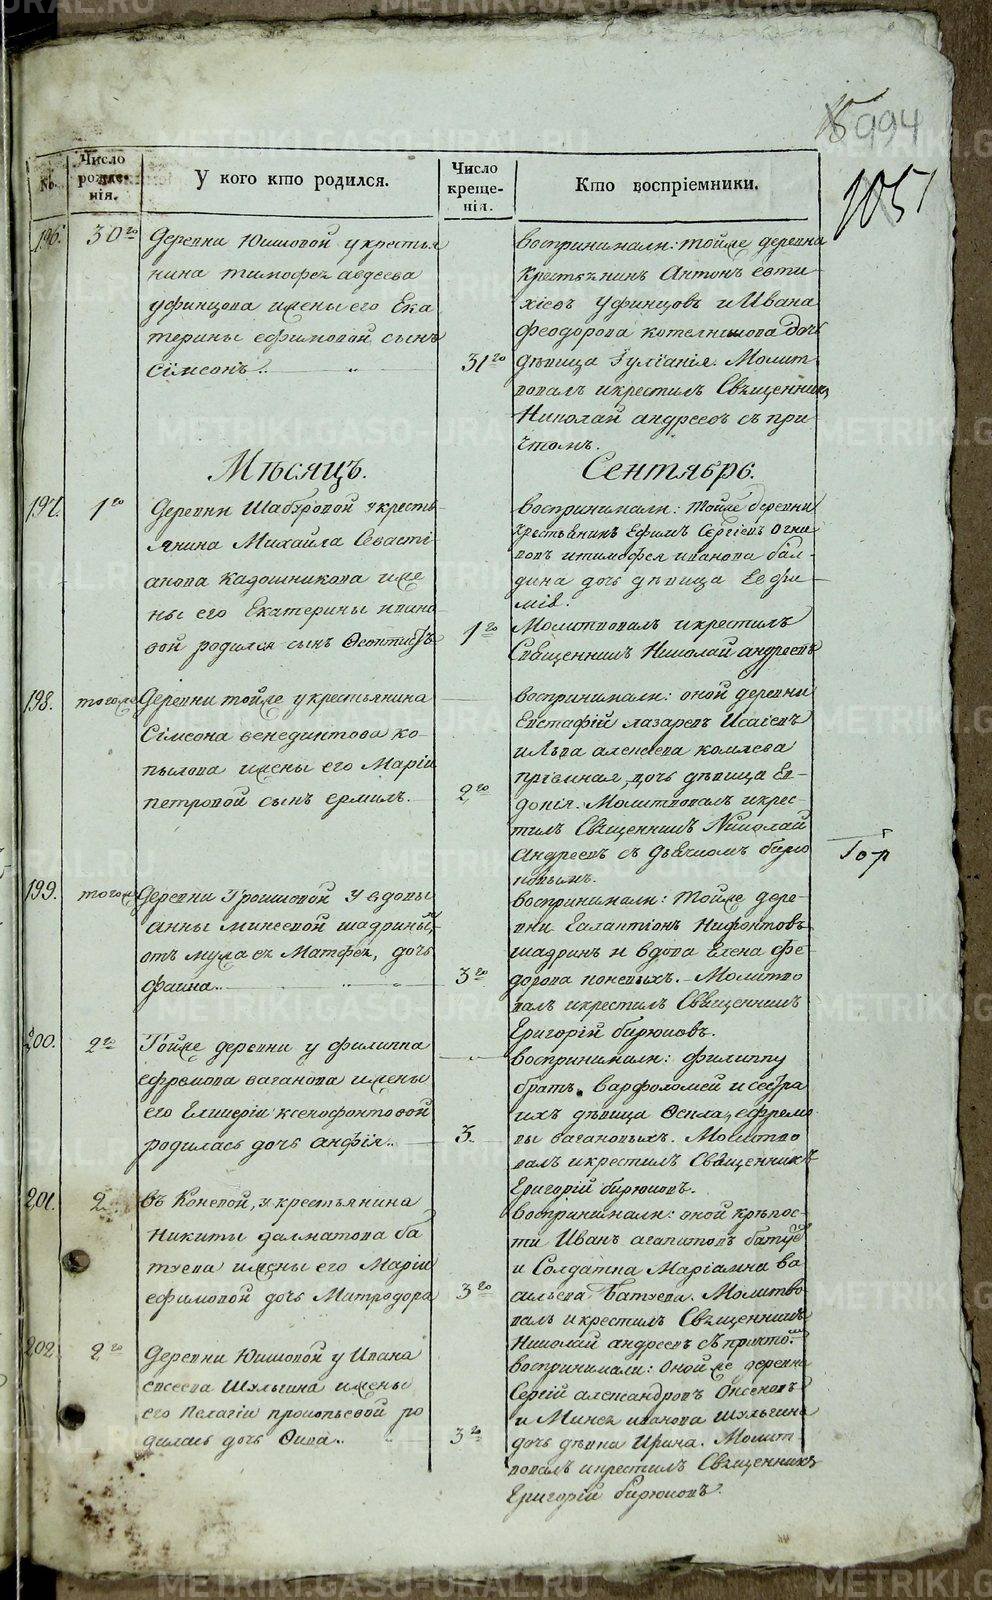 994
1051
№.
Число рожде-
нія.
У кого кто родился.
Число
креще-
нія.
Кто воспріемники.
196. 30го
Деревни Юшковой у крестья
нина тимофея авдеева
уфинцова и жены его Ека
терины ефимовой сынъ
Сімеонъ..
31го
воспринимали: тойже деревни
крестьянинъ Антонъ евти
хіевъ Уфинцовъ и Ивана
феодорова котелникова дочь
дѣвица Іуліанія. Молит
вовалъ и крестилъ Священникъ
Николай андреевъ съ при
чтомъ.
Мѣсяцъ. Сентябрь.
197. 1го
Деревни Шабуровой у кресть
янина Михайла Севасті
анова Кадошникова и же
ны его Екатерины ивано
вой родился сынъ Ѳеоктистъ
1го
воспринимали: тойже деревни
крестьянинъ Ефимъ Сергіевъ Огни
вовъ и тимофея иванова бал
дина дочь дѣвица Евфи
мія.
Молитвовалъ и крестилъ
Священникъ Николай андреевъ
198. тогоже
Деревни тойже у крестьянина
Сімеона венедиктова ко
пылова и жены его Маріи
петровой сынъ ермилъ.
2го
воспринимали: оной деревни
Евстафій лазаревъ Исаіевъ
и Льва алексеева комлева
пріемная дочь дѣвица Ев
докія. Молитвовалъ и крес
тилъ Священникъ Николай
Андреевъ съ дьячкомъ бирю
ковымъ.
199. тогоже
Деревни Грошковой у вдовы
анны минеевой шадриныхъ
отъ мужа ея Матфея, дочь
фаина..
3го
воспринимали: тойже дере
вни Галактіонъ Нифонтовъ
шадринъ и вдова Елена фе
дорова коневыхъ. Молитво
валъ и крестилъ Священникъ
Григорій бирюковъ.
200. 2го
Тойже деревни у филиппа
ефремова ваганова и жены
его Гликеріи ксенофонтовой
родилась дочь анфія..
3.
воспринимали: филиппу
братъ варфоломей и сестра
ихъ дѣвица Ѳекла, ефремо
вы вагановыхъ. Молитво
валъ и крестилъ Священникъ
Григорій бирюковъ.
201. 2
въ Коневой, у крестьянина
Никиты далматова ба
туева и жены его Маріи
ефимовой дочь Матродора
3го
воспринимали: оной крѣпос
ти Иванъ агапитовъ батуевъ
и Солдатка Маріамна ва
сильева Батуева. Молитво
валъ и крестилъ Священникъ
Николай андреевъ съ причто.
202 2го
Деревни Юшковой у Ивана
евсеева Шульгина и жены
его Пелагіи прокопьевой ро
дилась дочь Ѳива..
3го
воспринимали: онойже деревни
Сергій александровъ Оксеновъ
и Минея иванова шульгина
дочь дѣвка Ирина. Молит
вовалъ и крестилъ Священникъ
Григорій бирюковъ.
METRIKI.GASO-URAL.RU